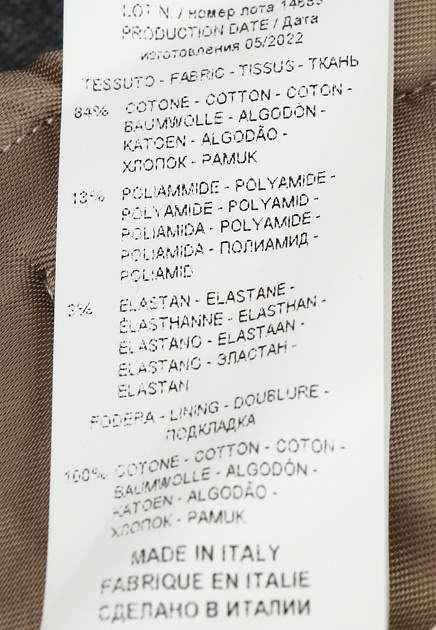 LOT N. / номер лота
PRODUCTION DATE / Дата
изготовления 05/2022
TESSUTO - FABRIC - TISSUS - ТКАНЬ
84% COTONE - COTTON - COTON -
BAUMWOLLE - ALGODÓN -
KATOEN - ALGODÃO -
ХЛОПОК - PAMUK
13% POLIAMMIDE - POLYAMIDE -
POLYAMIDE - POLYAMID -
POLIAMIDA - POLYAMIDE -
POLIAMIDA - ПОЛИАМИД -
POLIAMID
3% ELASTAN - ELASTANE -
ÉLASTHANNE - ELASTHAN -
ELASTANO - ELASTAAN -
ELASTANO - ЭЛАСТАН -
ELASTAN
FODERA - LINING - DOUBLURE -
ПОДКЛАДКА
100% COTONE - COTTON - COTON -
BAUMWOLLE - ALGODÓN -
KATOEN - ALGODÃO -
ХЛОПОК - PAMUK
MADE IN ITALY
FABRIQUE EN ITALIE
СДЕЛАНО В ИТАЛИИ